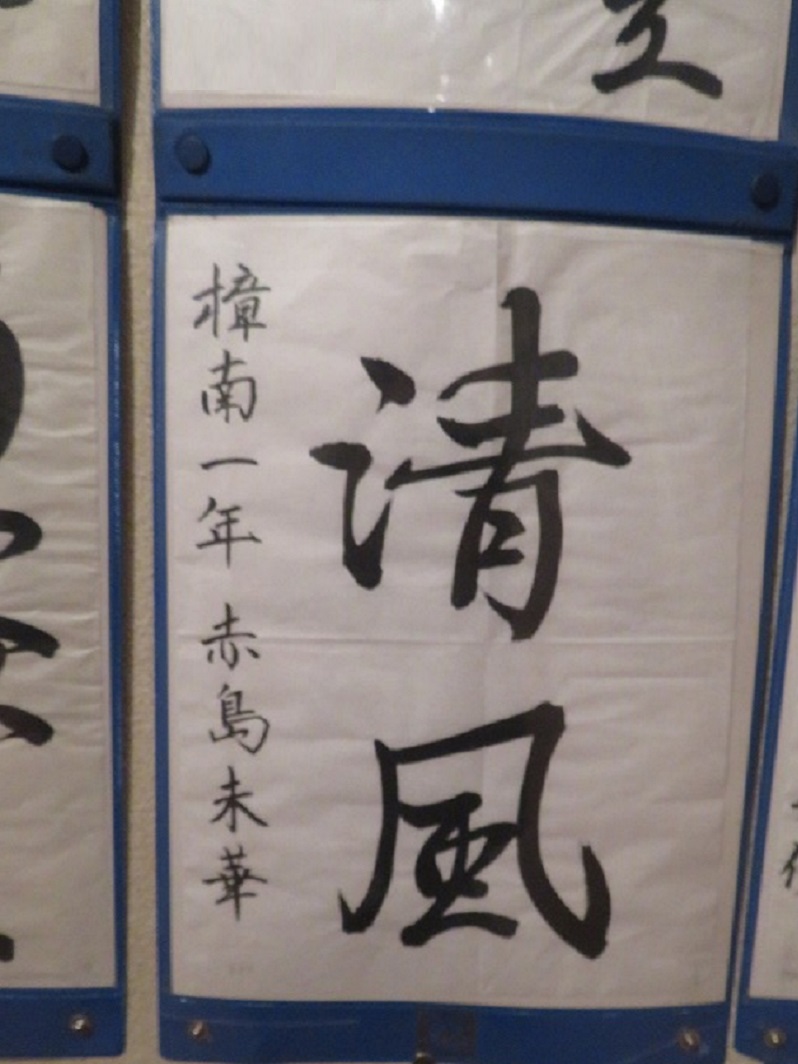 清風
樟南一年 赤島未華